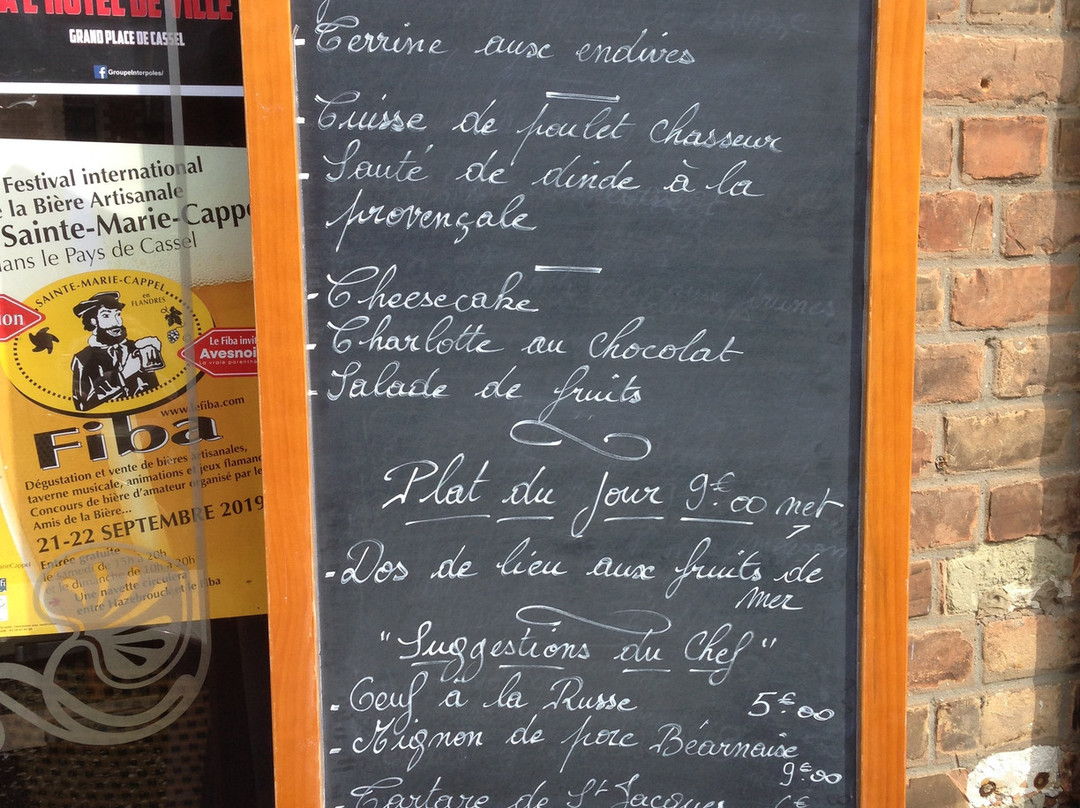 A L'HÔTEL DE VILLE
GRAND PLACE DE CASSEL
GroupeInterpoles/
Festival international
la Bière Artisanale
Sainte-Marie-Cappe
ans le Pays de Cassel
SAINTE-MARIE-CAPPEL
en
FLANDRES
ion
Le Fiba invi
Avesnoi
www.lefiba.com
Fiba
Dégustation et vente de bières artisanales,
taverne musicale, animations et jeux flamand
Concours de bière d'amateur organisé par le
Amis de la Bière...
21-22 SEPTEMBRE 2019
Entrée gratuite
le samedi de 15h à 20h
et le dimanche de 10h à 20h
Une navette circulera
entre Hazebrouck et le Fiba
- Terrine aux endives
- Cuisse de poulet chasseur
- Sauté de dinde à la
provençale
- Cheesecake
- Charlotte au chocolat
- Salade de fruits
Plat du jour 9€.00 net
- Dos de lieu aux fruits de
mer
"Suggestions du Chef"
- Oeuf à la Russe 5€.00
- Mignon de porc Béarnaise
9€.00
- Tartare de St Jacques